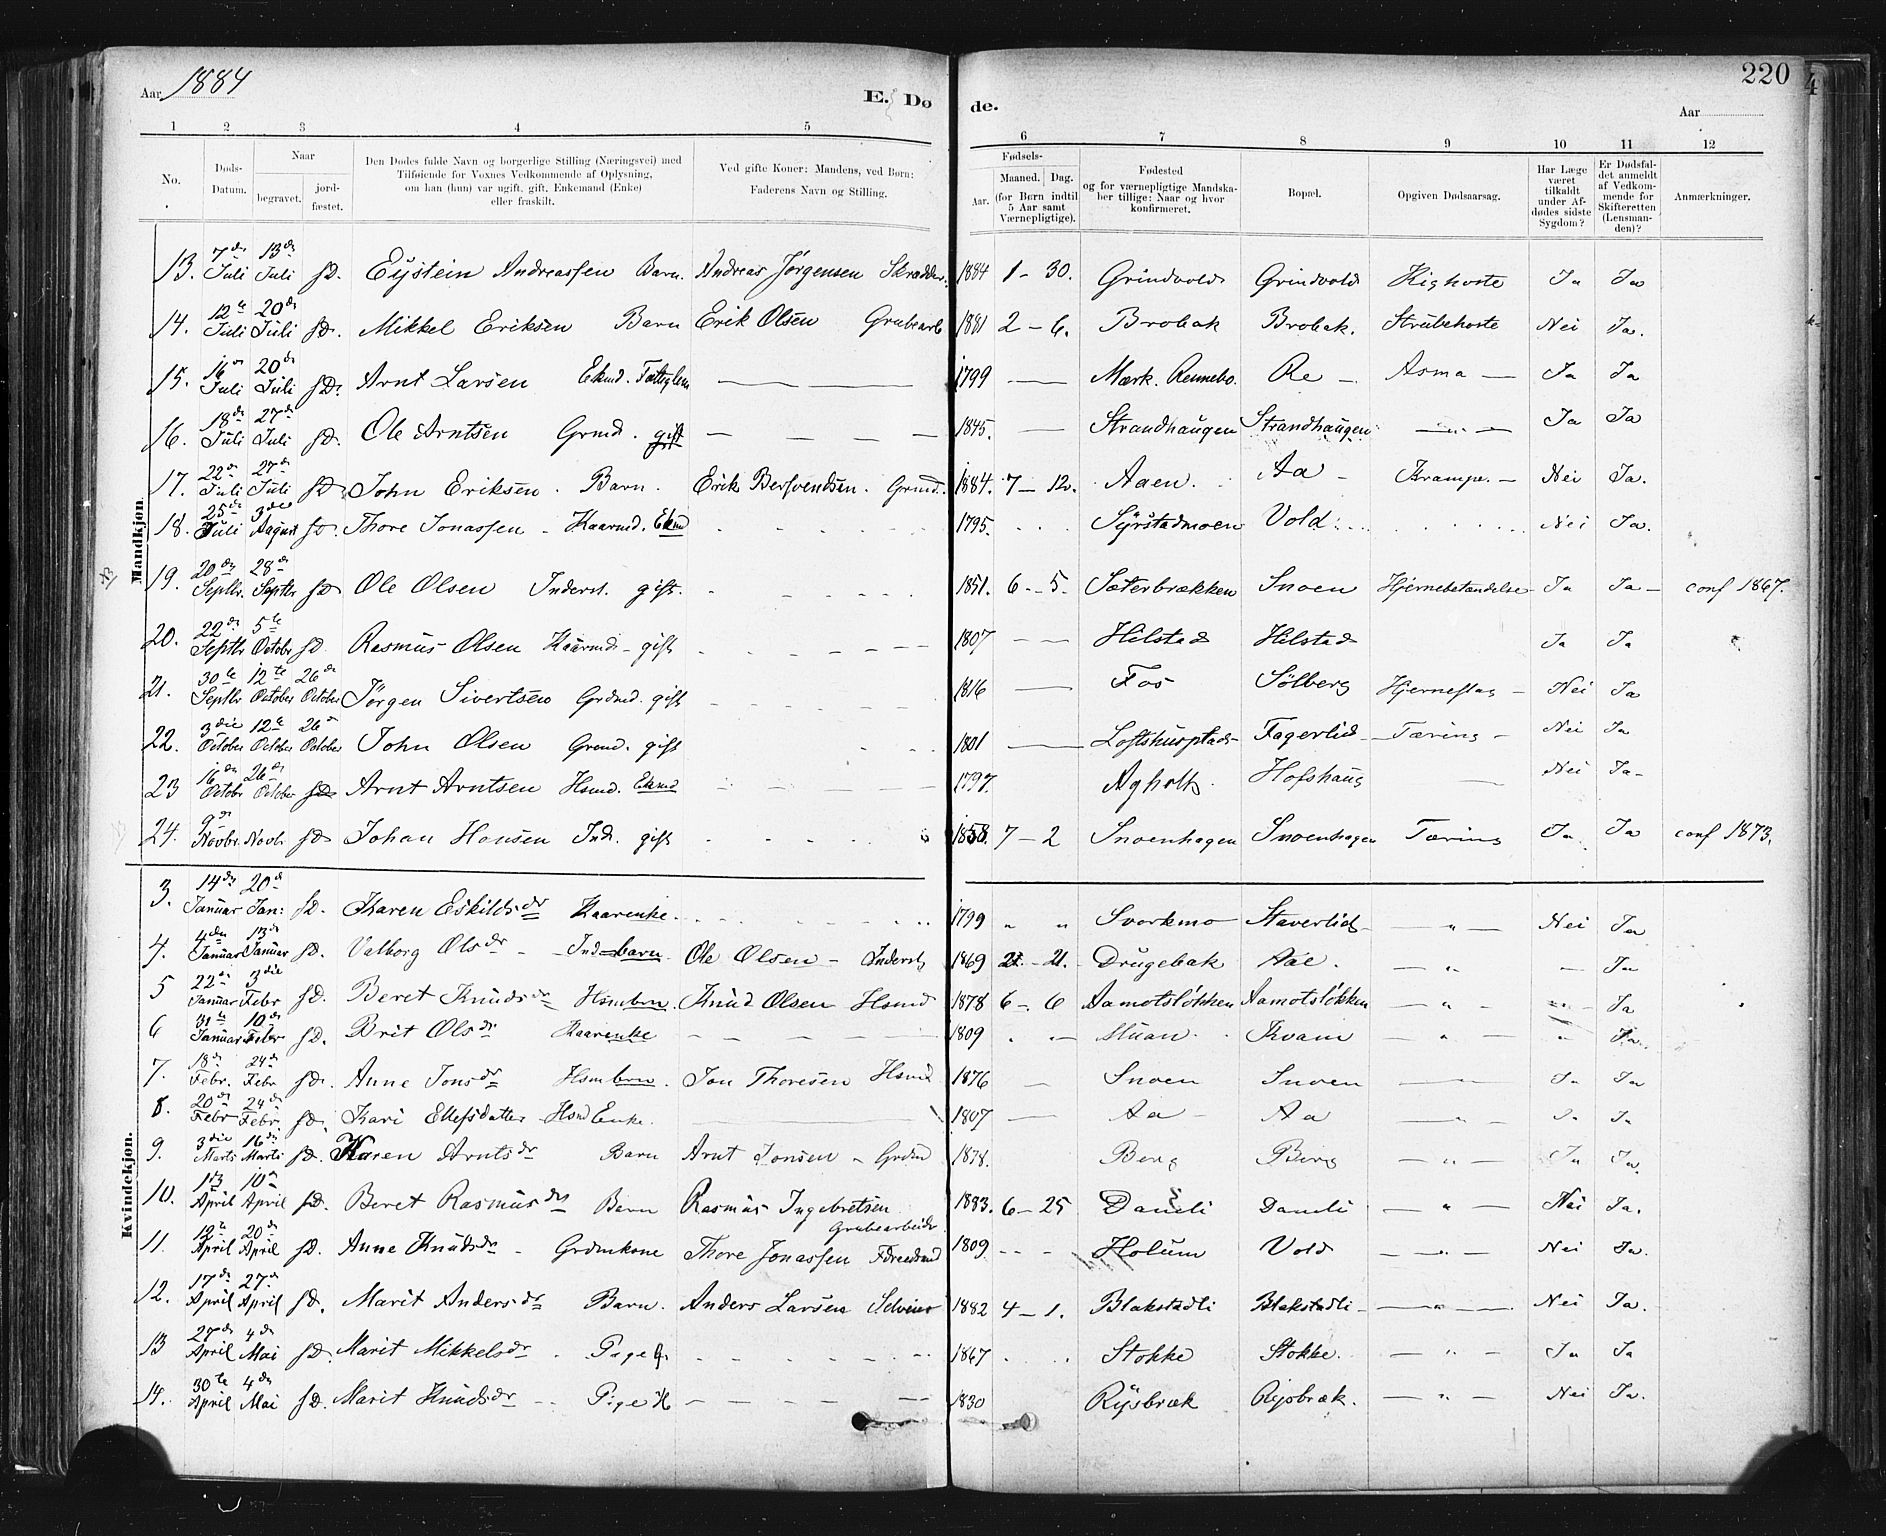 Aar 1884
E. Dø de.
220
Aar
1 2 3 4 5 6 7 8 9 10 11 12
No.
Døds-Datum.
Naar
begravet.
jord-fæstet.
Den Dødes fulde Navn og borgerlige Stilling (Næringsvei) med
Tilføiende for Voxnes Vedkommende af Oplysning,
om han (hun) var ugift, gift, Enkemand (Enke)
eller fraskilt.
Ved gifte Koner: Mandens, ved Børn:
Faderens Navn og Stilling.
Fødsels-
Aar.
Maaned. Dag.
(for Børn indtil
5 Aar samt
Værnepligtige).
Fødested
og for værnepligtige Mandska-
ber tillige: Naar og hvor
konfirmeret.
Bopæl.
Opgiven Dødsaarsag.
Har Læge
været
tilkaldt
under Af-
dødes sidste
Sygdom?
Er Dødsfal-
det anmeldt
af Vedkom-
mende for
Skifteretten
(Lensman-
den)?
Anmærkninger.
Mandkjøn.
13. 7de Juli 13de Juli sD. Eystein Andreassen Barn. Andreas Jørgensen Skrædder. 1884 1 - 30. Grindvold Grindvold Kighoste Ja Ja
14. 12te Juli 20de Juli sD. Mikkel Eriksen Barn Erik Olsen Grubearb 1881 2 - 6. Brobak Brobak. Strubehoste Nei Ja.
15. 16de Juli 20de Juli sD. Arnt Larsen Ekmd. Fattiglem — 1799 — Mærk. Rennebo. Re — Asma — Ja Ja
16. 18de Juli 27de Juli sD. Ole Arntsen Grmd. gift — 1845. — Strandhaugen Strandhaugen — " — Ja Ja
17. 22de Juli 27de Juli sD John Eriksen. Barn. Erik Bersvendsen. Grmd. 1884. 7 - 12. Aaen. Aa — Krampe. — Nei Ja.
18. 25de Juli 3die August sD. Thore Jonassen - Kaarmd. Ekmd 1795. Syrstadmoen Vold Nei Ja.
19. 20de Septbr. 28de Septbr sD Ole Olsen Inderst. gift. 1851. 6 - 5. Sæterbrækken Snoen Hjernebetændelse Ja Ja — conf 1867.
20. 22de Septbr 5te October sD. Rasmus Olsen Kaarmd - gift 1807 — Hilstad Hilstad Ja Ja
21. 30te Septbr 12te October 26de October Jørgen Sivertsen Grdmd. gift 1816 — Fos Sølberg Hjerneslag — Nei Ja
22. 3die October 12te October 26de October John Olsen Grmd. gift 1801 — Loftshusplads Fagerlid Tæring — Nei Ja
23 16de Octobr 26de October sD Arnt Arntsen Hsmd. Ekmd 1797. Agholt Hofshaug — Nei Ja -
24. 9de Novbr. Novb. sD Johan Hansen Ind. gift 1858. 7 - 2 Snoenhagen Snoenhagen Tæring Ja Ja conf 1873.
Kvindekjøn.
3. 14de Januar 20de Jan: sD. Karen Eskildsdr Kaarenke. 1799 " " Svorkmo Staverlid — " — Nei Ja
4. 4de Januar 13de Januar sD. Valborg Olsdr - Ind-barn. Ole Olsen - Inderst 1869 - 21. Drugebak Aae. — " — — Ja
5 22de Januar 3die Febr sD. Beret Knudsdr Hsmbrn. Knud Olsen Hsmd 1878 6 - 6 Aamotsløkken Aamotsløkken — " — Ja
6 31te Januar 10de Febr sD. Brit Olsdr Kaarenke — 1809 Muan. Kvam — " — " Ja.
7. 18de Febr. 24de Febr sD. Anne Jonsdr Hsmbrn. Jon Thoresen Hsmd 1876 — Snoen Snoen — Ja Ja
8. 20de Febr 24de Febr. sD. Kari Ellefsdatter Hsmd Enke. — 1807 — Aa — Aa — " — Ja
9. 3die Marts 16de Marts sD. Karen Arntsdr Barn Arnt Jonsen - Grdmd 1878. Berg Berg — " — Ja Ja.
10. April 10de April sD. Beret Rasmusdr Barn Rasmus Ingebretsen Grubearbeider 1883. 6 - 25 Daneli Daneli — " — Nei Ja.
11. 12te April 20de April sD. Anne Knudsdr - Grdmkone Thore Jonassen 1809 Holum Vold — " — Nei Ja.
12. 17de April 27de April sD. Marit Andersdr Barn. Anders Larsen Selveier 1882 4 - 1. Blakstadli Blakstadli — " — Nei Ja.
13 27de April 4de Mai sD. Marit Mikkelsdr Pige 1867 Stokke Stokke. — " — Ja Ja
14. 30te April 4de Mai sD. Marit Knudsdr Pige 1830 Rysbræk Rysbræk. — " — Nei Ja.